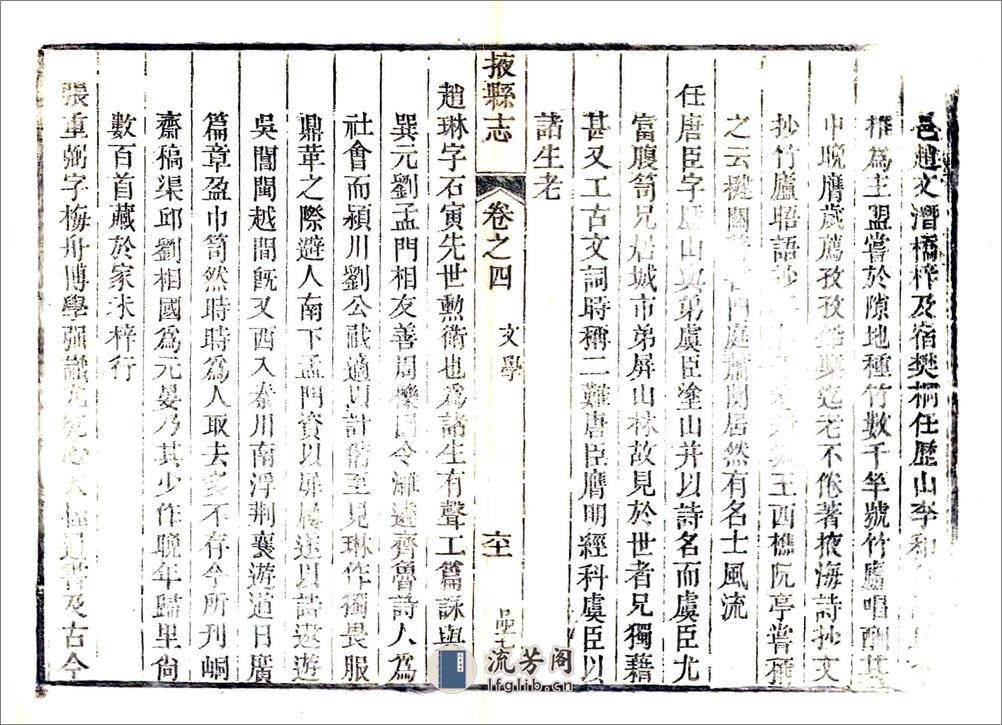 邑趙文潛橋梓及宿樊桐任歷山李和
稱為主盟嘗於隙地種竹數千竿號竹廬唱酬其
中晚膺歲薦孜孜迄老不倦著掖海詩抄文
抄竹廬晤語抄王西樵阮亭嘗稱
之云門庭肅閴居然有名士風流
任唐臣字歷山與弟虞臣塗山并以詩名而虞臣尤
富腹笥兄居城市弟屏山林故見於世者兄獨藉
甚又工古文詞時稱二難唐臣膺明經科虞臣以
諸生老
掖縣志 卷之四 文學
趙琳字石寅先世勲衛也為諸生有聲工篇詠與
巽元劉孟門相友善周櫟園令濰遴齊魯詩人為
社會而潁川劉公戭適以計偕至見琳作獨畏服
鼎革之際避人南下孟門實以扉屨送以詩遂遊
吳閶閩越間旣又西入秦川南浮荆襄遊道日廣
篇章盈巾笥然時時為人取去多不存今所刊峒
齋稿渠邱劉相國為元晏乃其少作晚年歸里尙
數百首藏於家未梓行
張重弼字梅舟博學强識尤究心太極通書及古今
流芳阁
lfglib.cn